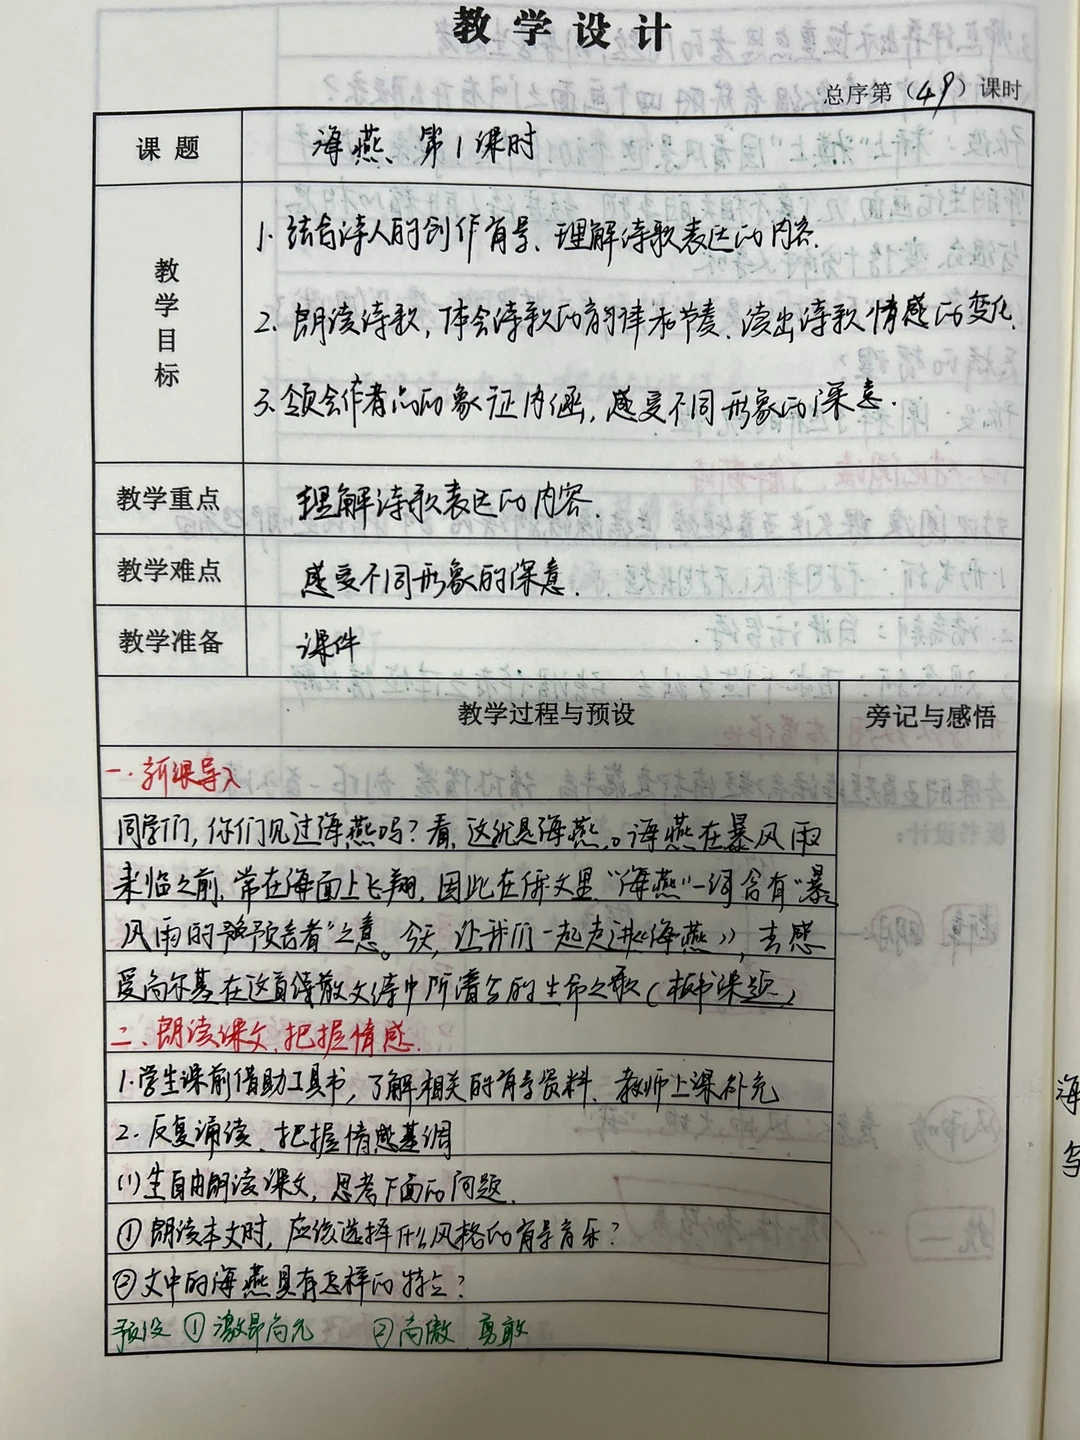 教学设计
总序第（49）课时
课题
海燕 第1课时
教学目标
1. 结合诗人的创作背景、理解诗歌表达的内容.
2. 朗读诗歌，体会诗歌的韵律和节奏、读出诗歌情感的变化.
3. 领会作者品的象征内涵，感受不同形象的深意.
教学重点
理解诗歌表达的内容.
教学难点
感受不同形象的深意.
教学准备
课件
教学过程与预设
旁记与感悟
一. 新课导入
同学们，你们见过海燕吗？看，这就是海燕。海燕在暴风雨
来临之前，常在海面上飞翔，因此在俄文里，“海燕”一词含有“暴
风雨的预言者”之意。今天，让我们一起走进《海燕》，去感
受高尔基在这首诗散文诗中所谱写的生命之歌（板书课题）
二、朗读课文，把握情感.
1. 学生课前借助工具书，了解相关的背景资料、教师上课补充
2. 反复诵读、把握情感基调
(1)生自由朗读课文，思考下面的问题.
①朗读本文时，应该选择什么风格的背景音乐？
②文中的海燕具有怎样的特点？
预设 ①激昂高亢 ②高傲 勇敢
海